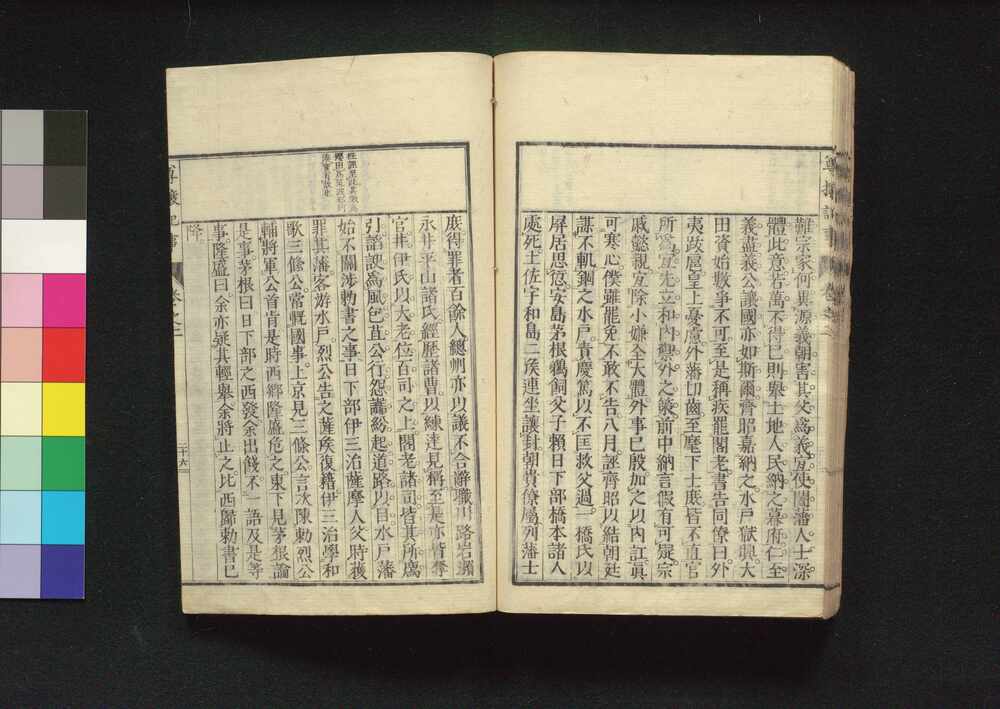 難宗家何異源義朝害其父爲義宜使闔藩人士深
體此意若萬不得已則擧土地人民納之幕府仁至
義盡義公讓國亦如斯爾齊昭嘉納之水戶獄興大
田資始數爭不可至是稱疾罷閣老書告同僚曰外
夷跋扈皇上憂慮外藩切齒至麾下士庶皆不直官
所爲宜先立和內禦外之策前中納言假有可疑宗
戚懿親宜除小嫌全大體外事已殷加之以內訌眞
可寒心僕雖罷免不敢不告八月誣齊昭以結朝廷
謀不軌錮之水戶責慶篤以不匡救父過一橋氏以
屏居思愆安島茅根鵜飼父子賴日下部橋本諸人
處死土佐宇和島二侯連坐讓封朝貴僚屬列藩士
庶得罪者百餘人總州亦以議不合辭職川路岩瀨
永井平山諸氏經歷諸曹以練達見稱至是亦皆奪
官井伊氏以大老位百司之上閣老諸司皆其所薦
引諂諛爲風包苴公行怨讟紛起道路以目水戶藩
始不關涉勅書之事日下部伊三治薩摩人父時獲
罪其藩客游水戶烈公告之薩侯復籍伊三治學和
歌三條公常慨國事上京見三條公言次陳勅烈公
輔將軍公首肯是時西鄕隆盛危之東下見茅根論
是事茅根曰日下部之西發余出餞不一語及是等
事隆盛曰余亦疑其輕擧余將止之比西歸勅書已
降
二十六